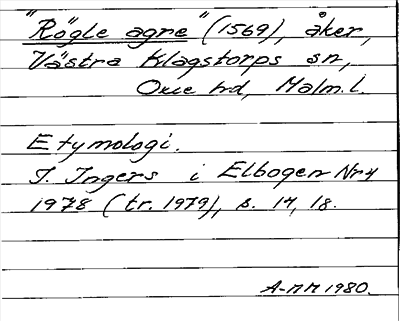 "Rögle agre" (1569), åker,
Västra Klagstorps sn,
Oxie hd, Malm. l.
Etymologi.
I. Ingers i Elbogen Nr 4
1978 (tr. 1979), s. 14, 18.
A-MM 1980.